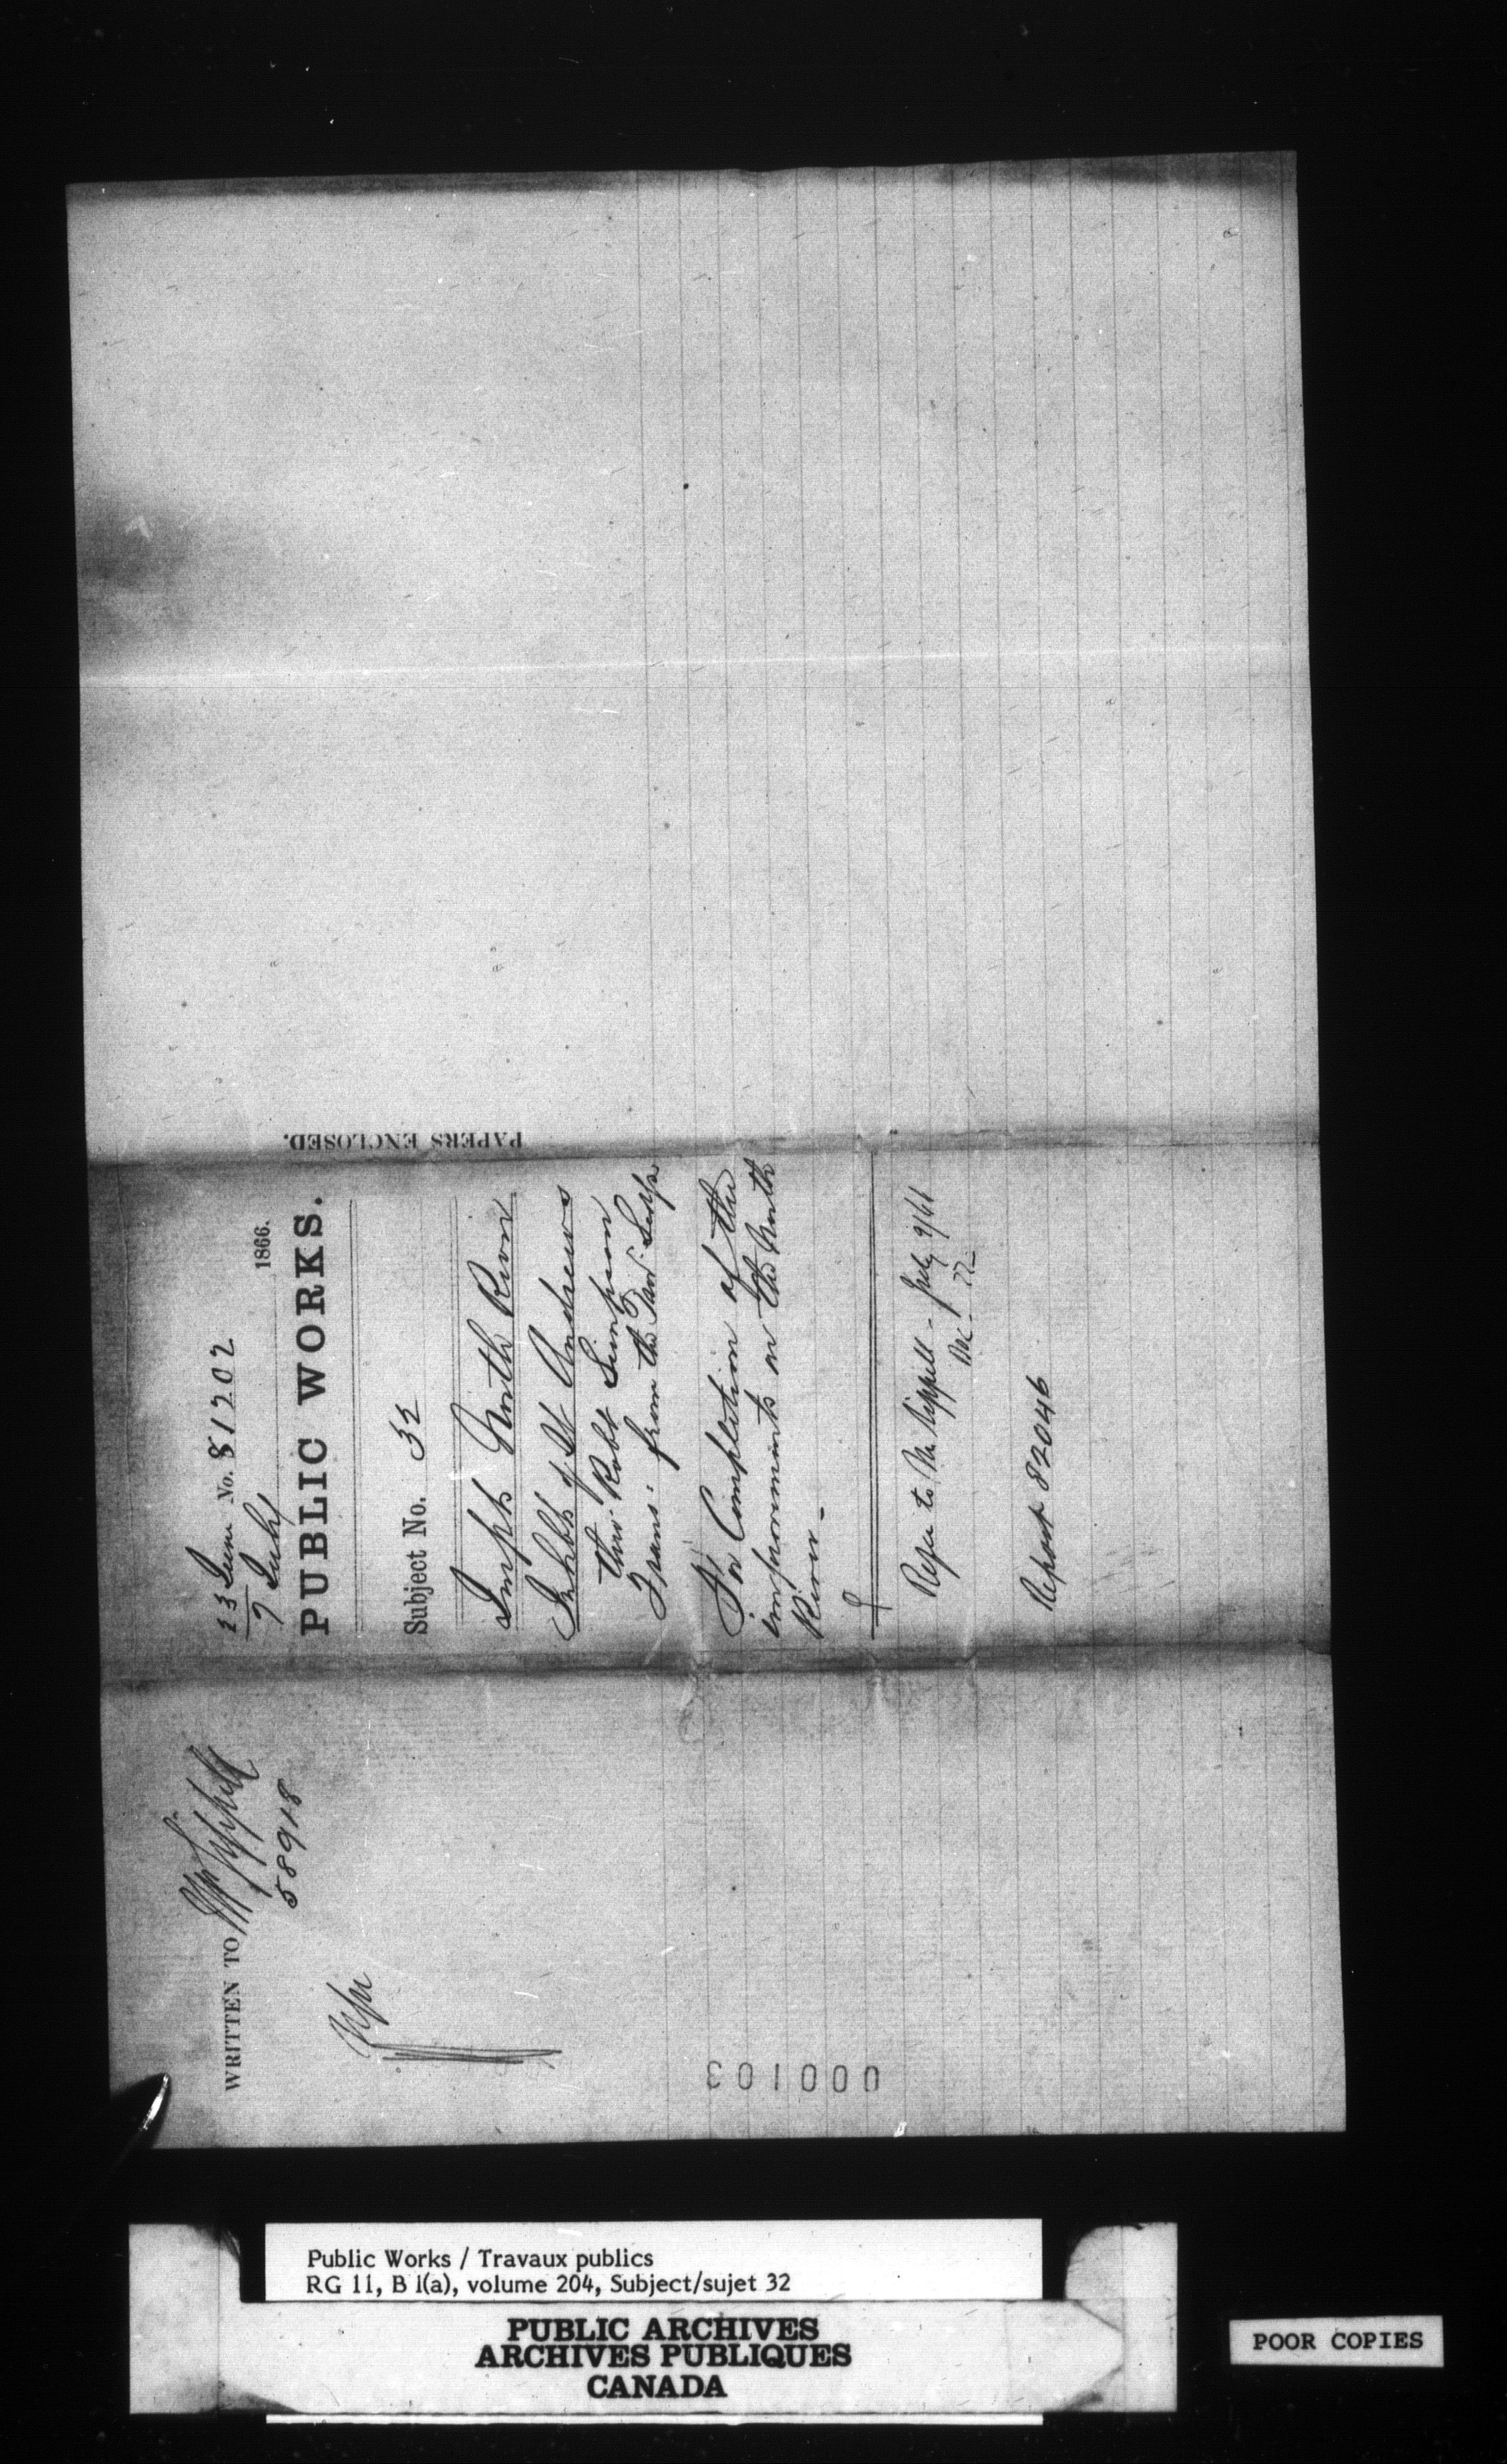 WRITTEN TO Mr Sippell
58918
23 June No. 81202
7 July 1866.
PUBLIC WORKS.
Subject No. 32
Impts North River
Inhbts of St Andrews
thro' Robt Simpson
Trans. from the
For Completion of the
improvements on the North
River -
Refer to Mr Sippell - July 9/66
Dec. 22
Report 82046
PAPERS ENCLOSED.
000103
Public Works / Travaux publics
RG 11, B 1(a), volume 204, Subject/sujet 32
PUBLIC ARCHIVES
ARCHIVES PUBLIQUES
CANADA
POOR COPIES